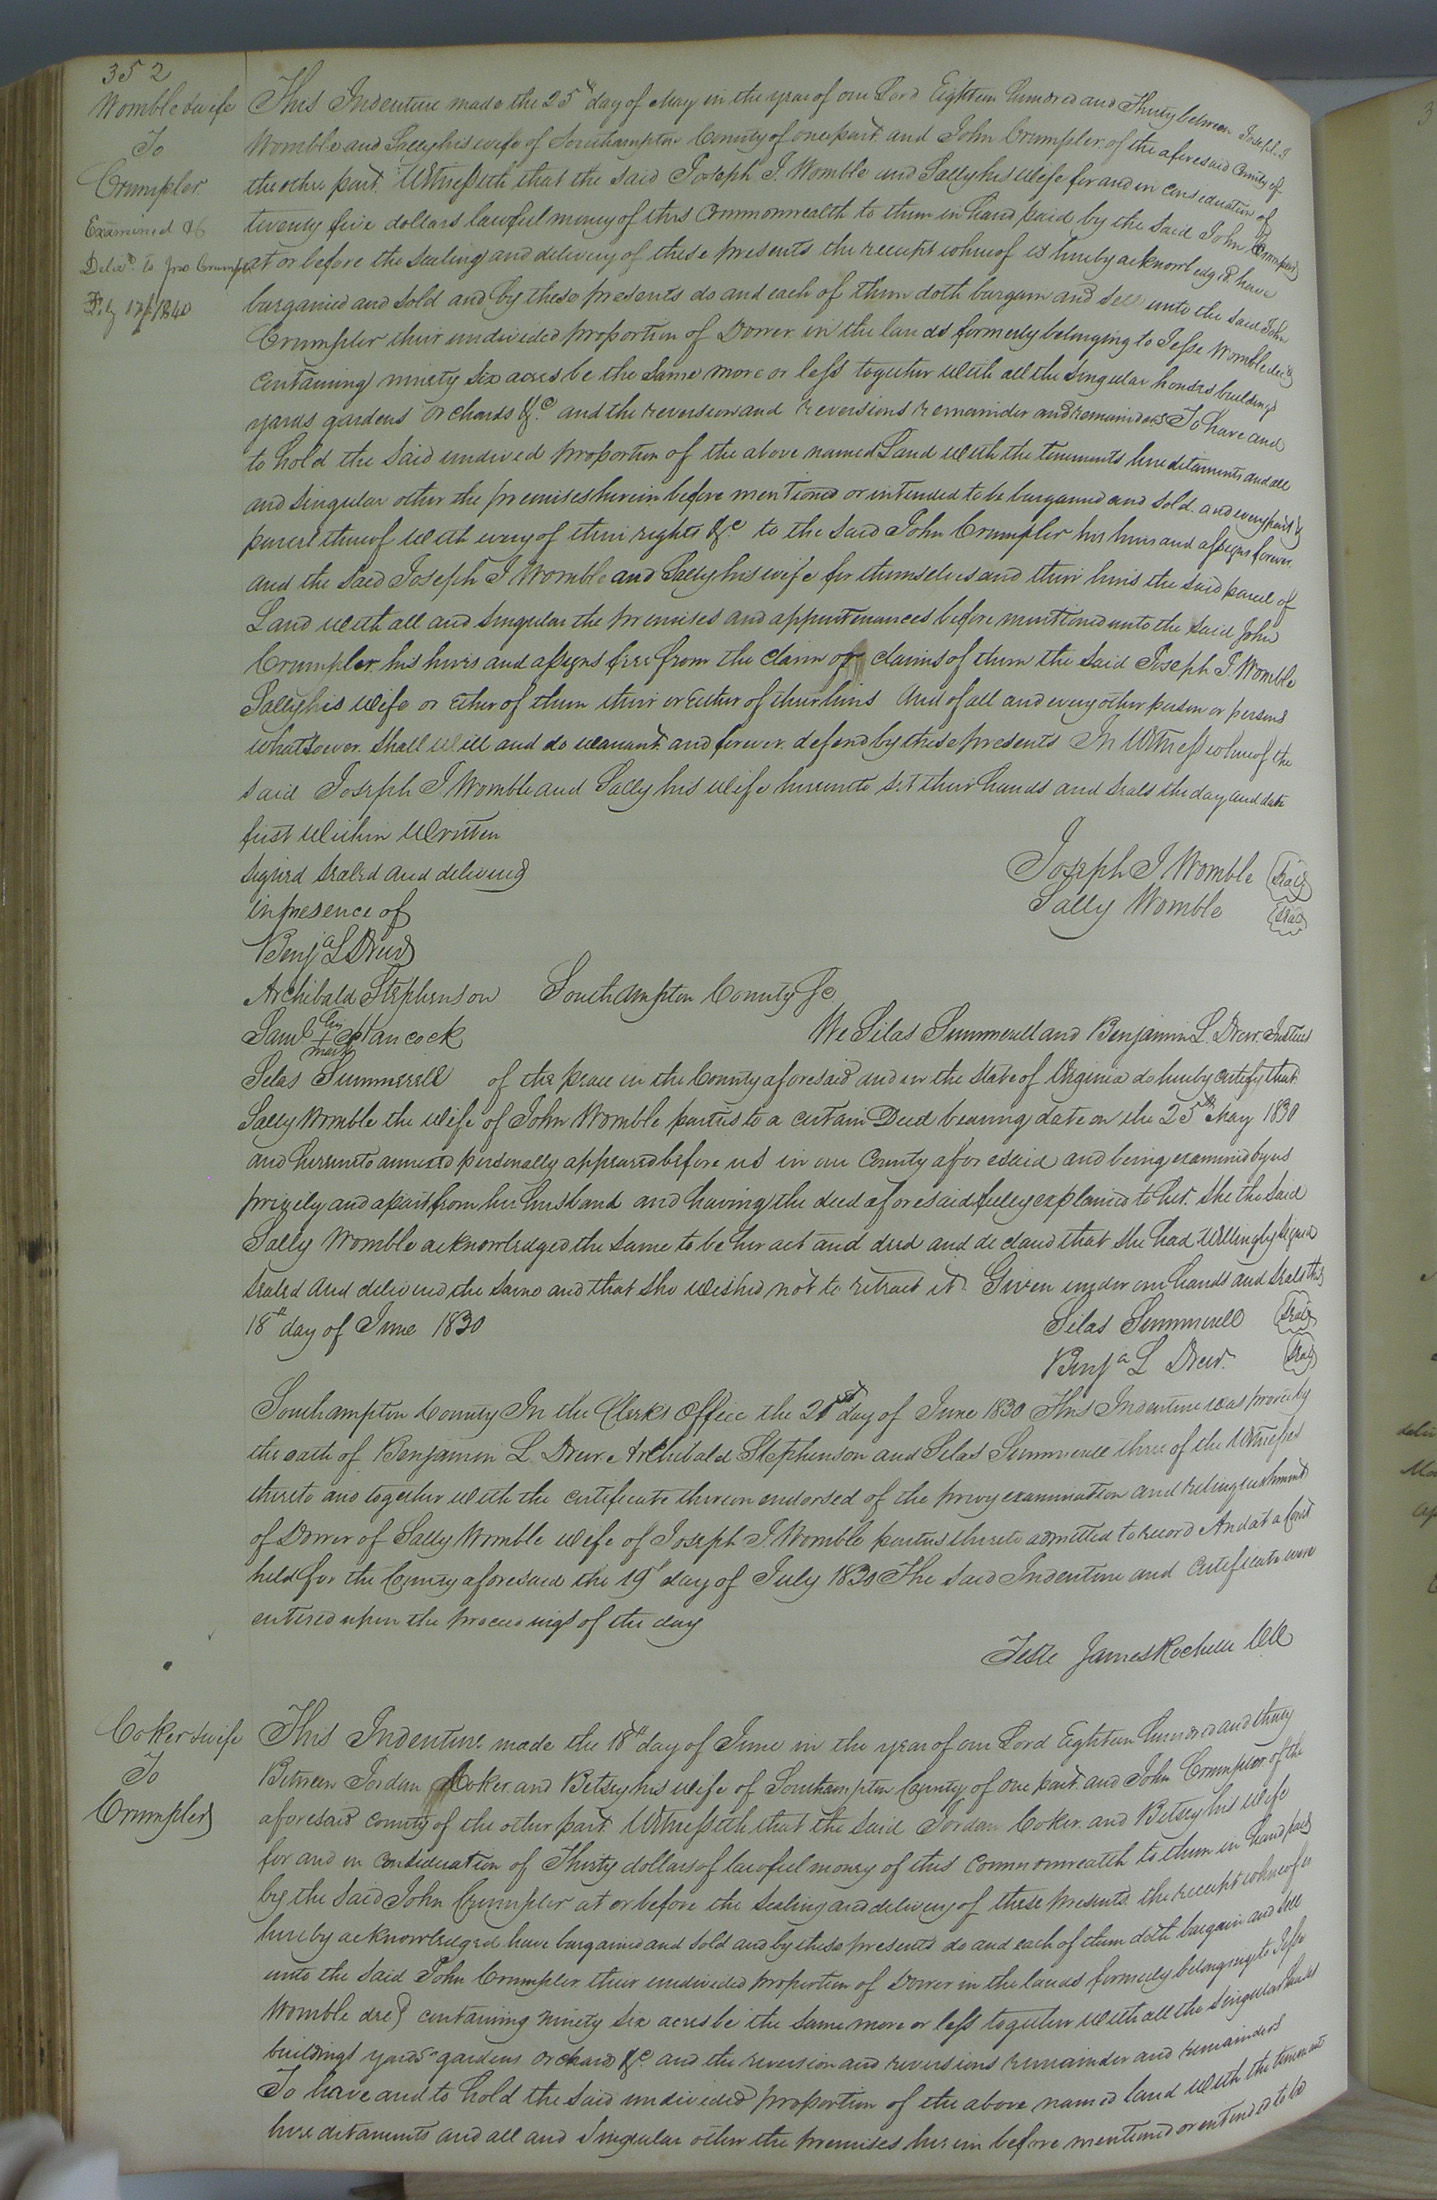 352
Womble & wife
To
Crumpler
Examined &
Delivd. to Jno Crumpler
Feby 17th 1840
This Indenture made the 25th day of May in the year of our Lord Eighteen hundred and Thirty between Joseph J
Womble and Sally his wife of Southampton County of one part and John Crumpler of the aforesaid County of
the other part. Witnesseth that the said Joseph J. Womble and Sally his wife for and in consideration of
twenty five dollars lawful money of this Commonwealth to them in hand paid by the said John Crumpler
at or before the sealing and delivery of these presents the receipt whereof is hereby acknowledged have
bargained and sold and by these presents do and each of them doth bargain and sell unto the said John
Crumpler their undivided proportion of Dower in the lands formerly belonging to Jesse Womble decd
Containing ninety six acres be the same more or less together with all the singular houses buildings
yards gardens orchards &c. and the reversion and reversions remainder and remainders To have and
to hold the said undived proportion of the above named Land with the tenements hereditaments and all
and singular other the premises herein before mentioned or intended to be bargained and sold. and every part &
parcel thereof with every of their rights &c. to the said John Crumpler his heirs and assigns forever.
and the said Joseph J Womble and Sally his wife for themselves and their heirs the said parcel of
Land with all and singular the premises and appurtenances before mentioned unto the said John
Crumpler his heirs and assigns free from the claim or claims of them the said Joseph J. Womble
Sally his wife or either of them their or either of their heirs And of all and every other person or persons
whatsoever shall will and do warrant and forever defend by these presents In Witness whereof the
said Joseph J Womble and Sally his wife hereunto set their hands and seals the day and date
first within written
signed sealed and delivered
in presence of
Joseph J Womble Seal
Sally Womble Seal
Benja L Drew
Archibald Stephenson Southampton County Sc
Saml his + mark Hancock We Silas Summerell and Benjamin L. Drew Justices
Silas Summerell of the peace in the County aforesaid and in the State of Virginia do hereby certify that
Sally Womble the wife of John Womble parties to a certain Deed bearing date on the 25th May 1830
and hereunto annexed personally appeared before us in our County aforesaid and being examined by us
privily and apart from her husband and having the deed aforesaid fully explained to her. she the said
Sally Womble acknowledged the same to be her act and deed and declared that she had willingly signed
sealed and delivered the same and that she wished not to retract it. Given under our hands and seals this
18th day of June 1830
Silas Summerell Seal
Benja L Drew. Seal
Southampton County In the Clerks Office the 21st day of June 1830 This Indenture was proved by
the oath of Benjamin L Drew Archibald Stephenson and Silas Summerell three of the Witnesses
thereto and together with the certificate thereon endorsed of the privy examination and relinquishment
of Dower of Sally Womble wife of Joseph J. Womble parties thereto admitted to record And at a Court
held for the County aforesaid the 19th day of July 1830 The said Indenture and Certificate were
entered upon the proceedings of the day
Teste James Rochelle Clk
Coker & wife
To
Crumpler
This Indenture made the 18th day of June in the year of our Lord Eighteen hundred and thirty
Between Jordan Coker and Betsey his wife of Southampton County of one part. and John Crumpler of the
aforesaid county of the other part. Witnesseth that the said Jordan Coker and Betsey his wife
for and in consideration of Thirty dollars of lawful money of this commonwealth to them in hand paid
by the said John Crumpler at or before the sealing and delivery of these presents the receipt whereof is
hereby acknowledged have bargained and sold and by these presents do and each of them doth bargain and sell
unto the said John Crumpler their undivided proportion of Dower in the lands formerly belonging to Jesse
Womble decd containing ninety six acres be the same more or less together with all the singular houses
buildings yards gardens orchards &c and the reversion and reversions remainder and remainders
To have and to hold the said undivided proportion of the above named land with the tenements
hereditaments and all and singular other the premises herein before mentioned or intended to be